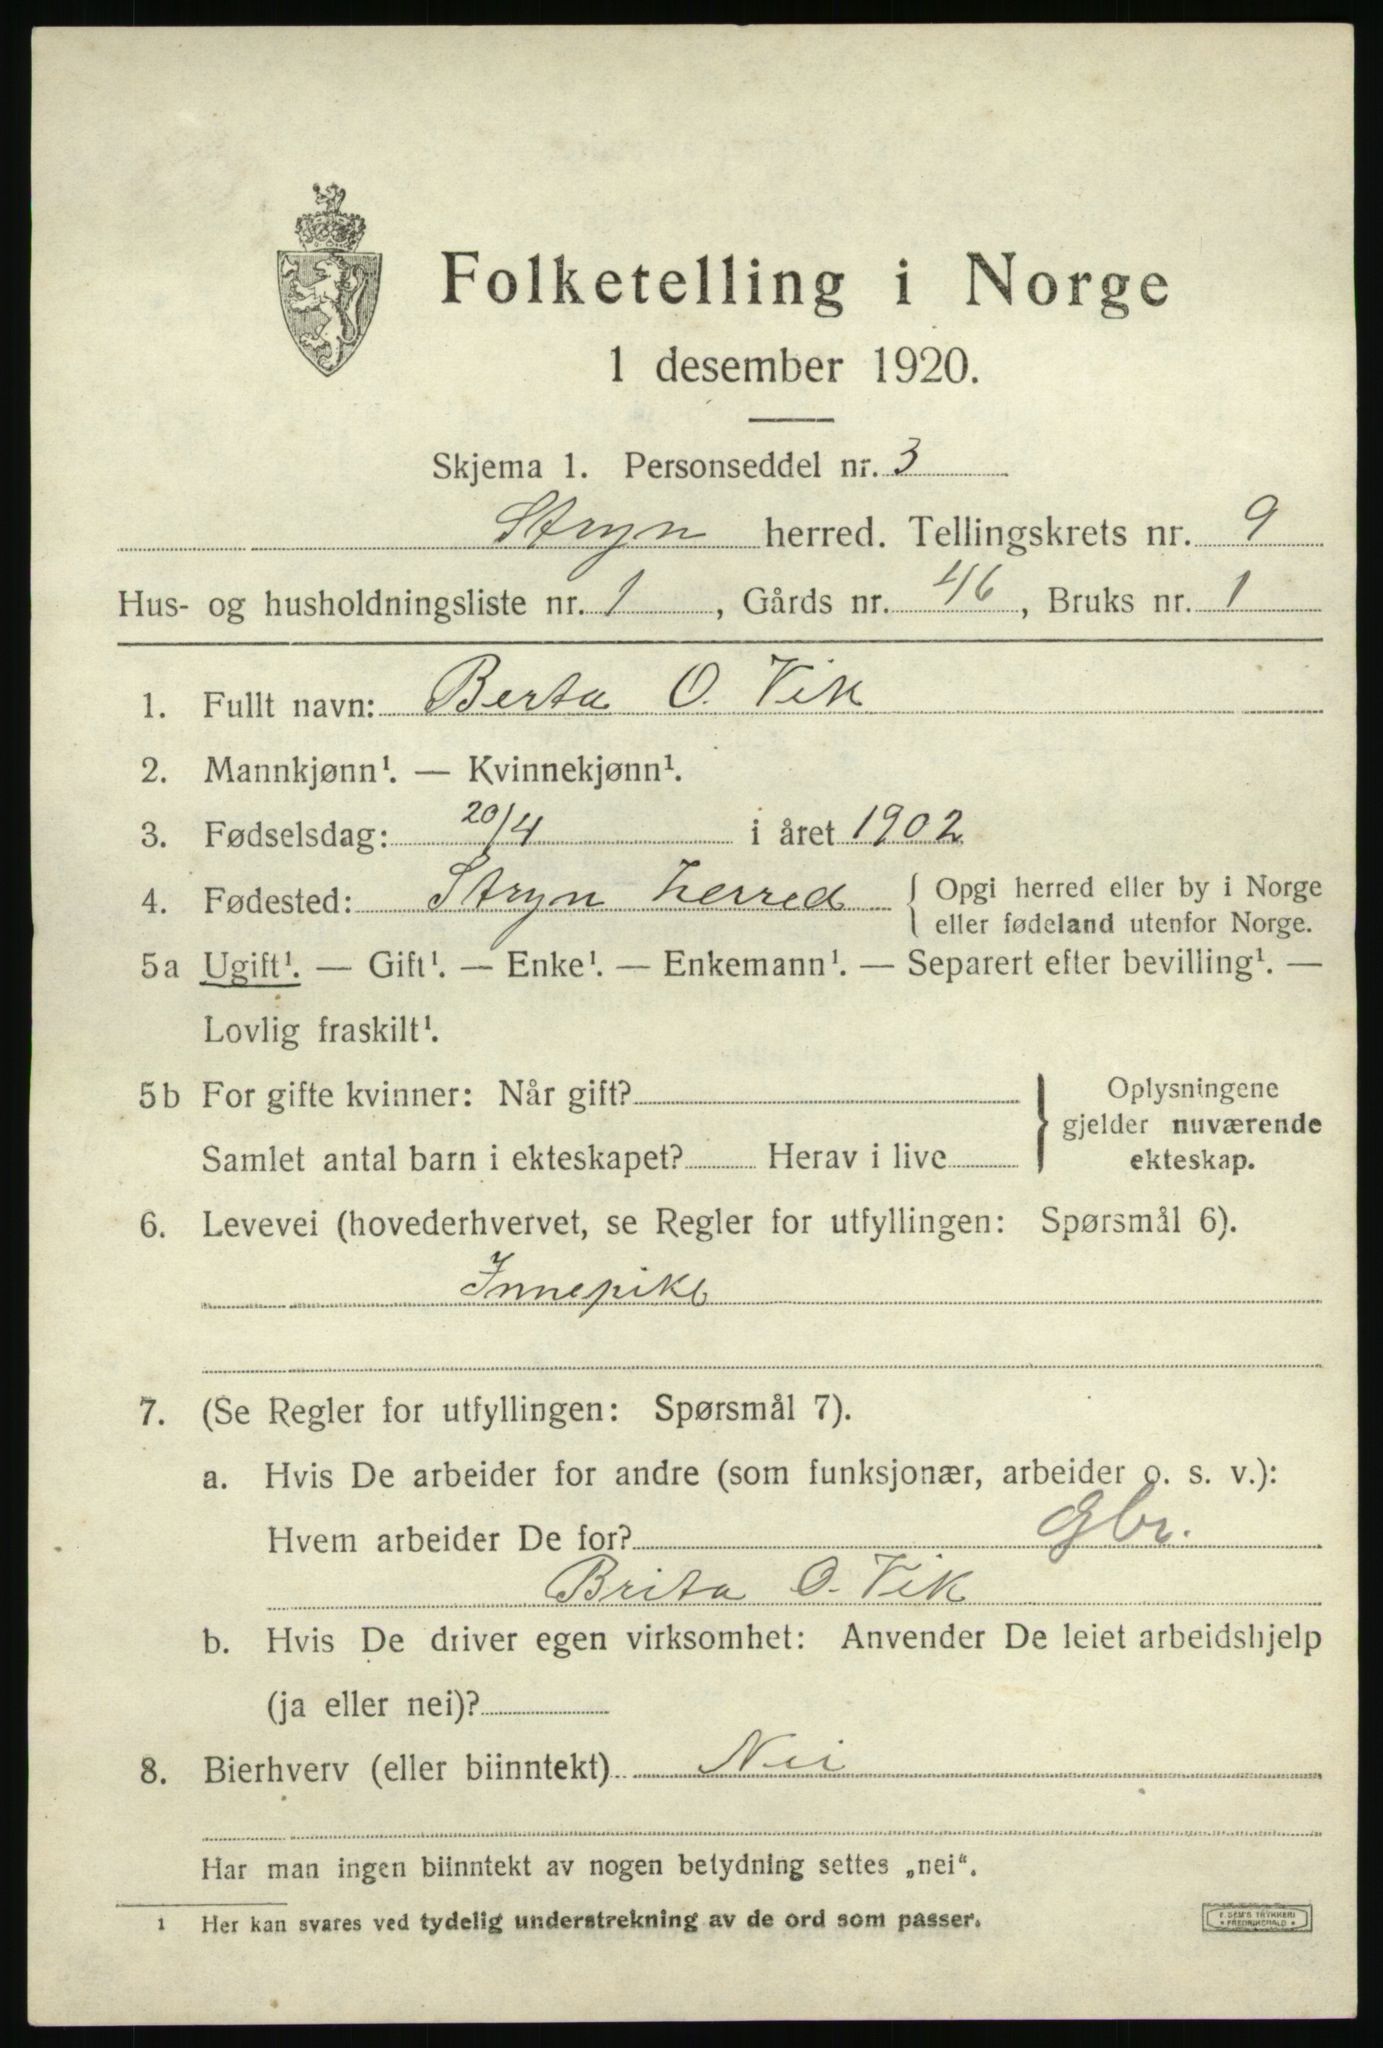 Folketelling i Norge
1 desember 1920.
Skjema 1. Personseddel nr. 3
Stryn herred. Tellingskrets nr. 9
Hus- og husholdningsliste nr. 1, Gårds nr. 46, Bruks nr. 1
1. Fullt navn: Berta O. Vik
2. Mannkjønn¹. — Kvinnekjønn¹.
3. Fødselsdag: 20/4 i året 1902
4. Fødested: Stryn herred { Opgi herred eller by i Norge
eller fødeland utenfor Norge.
5a Ugift¹. — Gift¹. — Enke¹. — Enkemann¹. — Separert efter bevilling¹. —
Lovlig fraskilt¹.
5b For gifte kvinner: Når gift?
Samlet antal barn i ekteskapet? Herav i live
} Oplysningene
gjelder nuværende
ekteskap.
6. Levevei (hovederhvervet, se Regler for utfyllingen: Spørsmål 6).
Innepike
7. (Se Regler for utfyllingen: Spørsmål 7).
a. Hvis De arbeider for andre (som funksjonær, arbeider o. s. v.):
Hvem arbeider De for? Gbr.
Brita O. Vik
b. Hvis De driver egen virksomhet: Anvender De leiet arbeidshjelp
(ja eller nei)?
8. Bierhverv (eller biinntekt) Nei
Har man ingen biinntekt av nogen betydning settes „nei“.
¹ Her kan svares ved tydelig understrekning av de ord som passer.
E. SEM'S TRYKKERI
FREDRIKSHALD